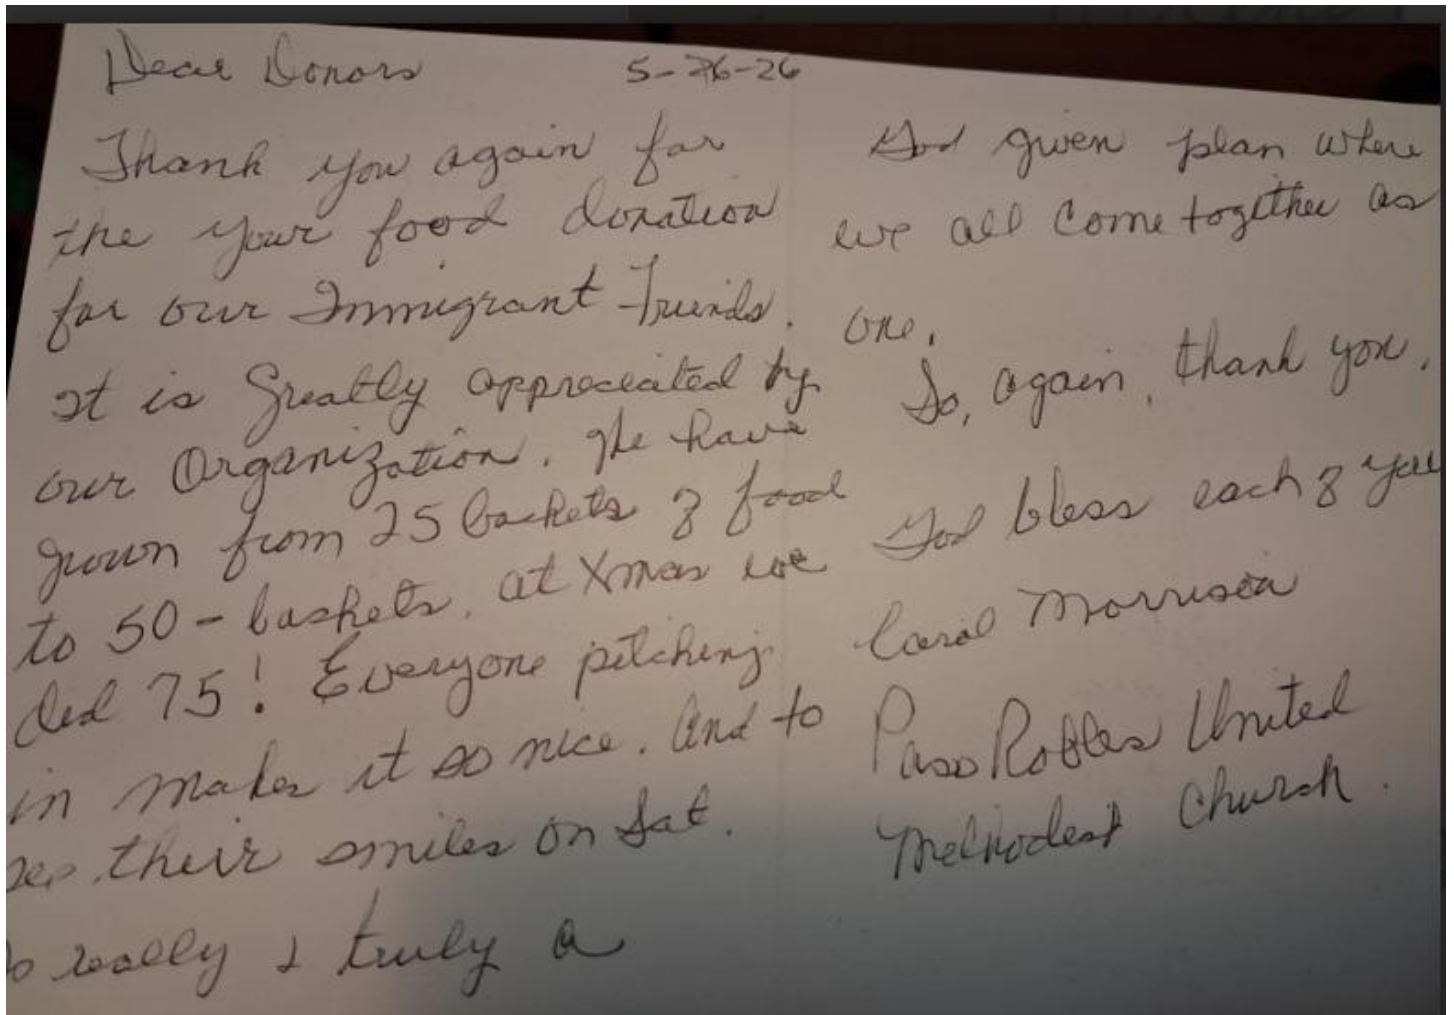 Dear Donors 5-26-26
Thank you again for
the your food donation
for our Immigrant Friends.
It is Greatly appreciated by
our Organization. We have
grown from 25 baskets of food
to 50 - baskets. at Xmas we
did 75! Everyone pitching
in makes it so nice. And to
see their smiles on Sat.
really & truly a
God given plan where
we all come together as
one.
So, again, thank you.
God bless each of you
Carol Morrison
Paso Robles United
Methodist Church.